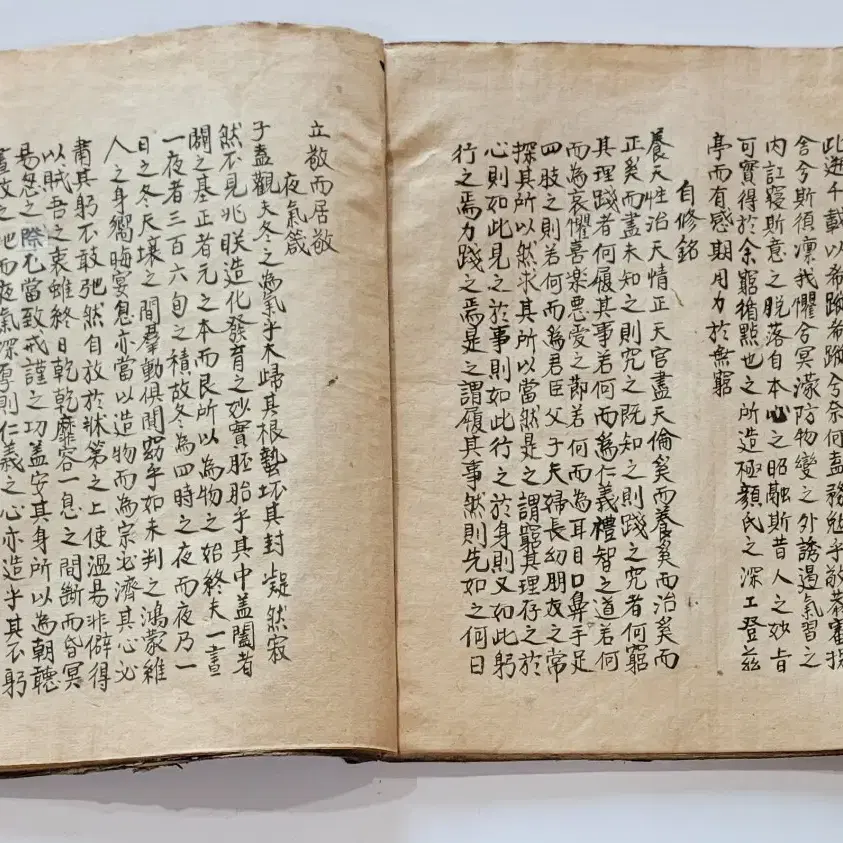 此逝千載以希蹤希蹤兮奈何盍務勉乎敬恭審操
舍兮斯須凛我懼兮冥濛防物變之外誘遏氣習之
内訌寢斯意之脫落自本心之昭融斯昔人之妙旨
可實得於余窮循點也之所造極顔氏之深工登玆
亭而有感期用力於無窮
自修銘
養天性治天情正天官盡天倫奚而養奚而治奚而
正奚而盡未知之則究之既知之則踐之究者何窮
其理踐者何履其事若何而爲仁義禮智之道若何
而為哀懼喜楽悪愛之即若何而為耳目口鼻手足
四肢之則若何而爲君臣父子夫婦長幼朋友之常
探其所以然求其所以當然是之謂窮其理存之於
心則如此見之於事則如此行之於身則又如此躬
行之焉力踐之焉是之謂履其事然則先如之何日
立敬而居敬
夜氣箴
子盍觀夫冬之為氣乎木歸其根蟄坏其封凝然寂
然不見兆眹造化發育之妙實胚胎乎其中盖闔者
闢之基正者元之本而艮所以為物之始終夫一晝
一夜者三百六旬之積故冬為四時之夜而夜乃一
日之冬天壤之間羣動俱閴窈乎如未判之鴻蒙維
人之身嚮晦宴息亦當以造物而為宗必濟其心必
肅其躬不敢弛然自放於牀第之上使慆易非僻得
以賊吾之衷雖終日乾乾靡容一息之間斷而昏冥
易忽之際尤當致戒謹之功盖安其身所以為朝聽
晝訪之地而夜氣深厚則仁義之心亦造乎其不躬